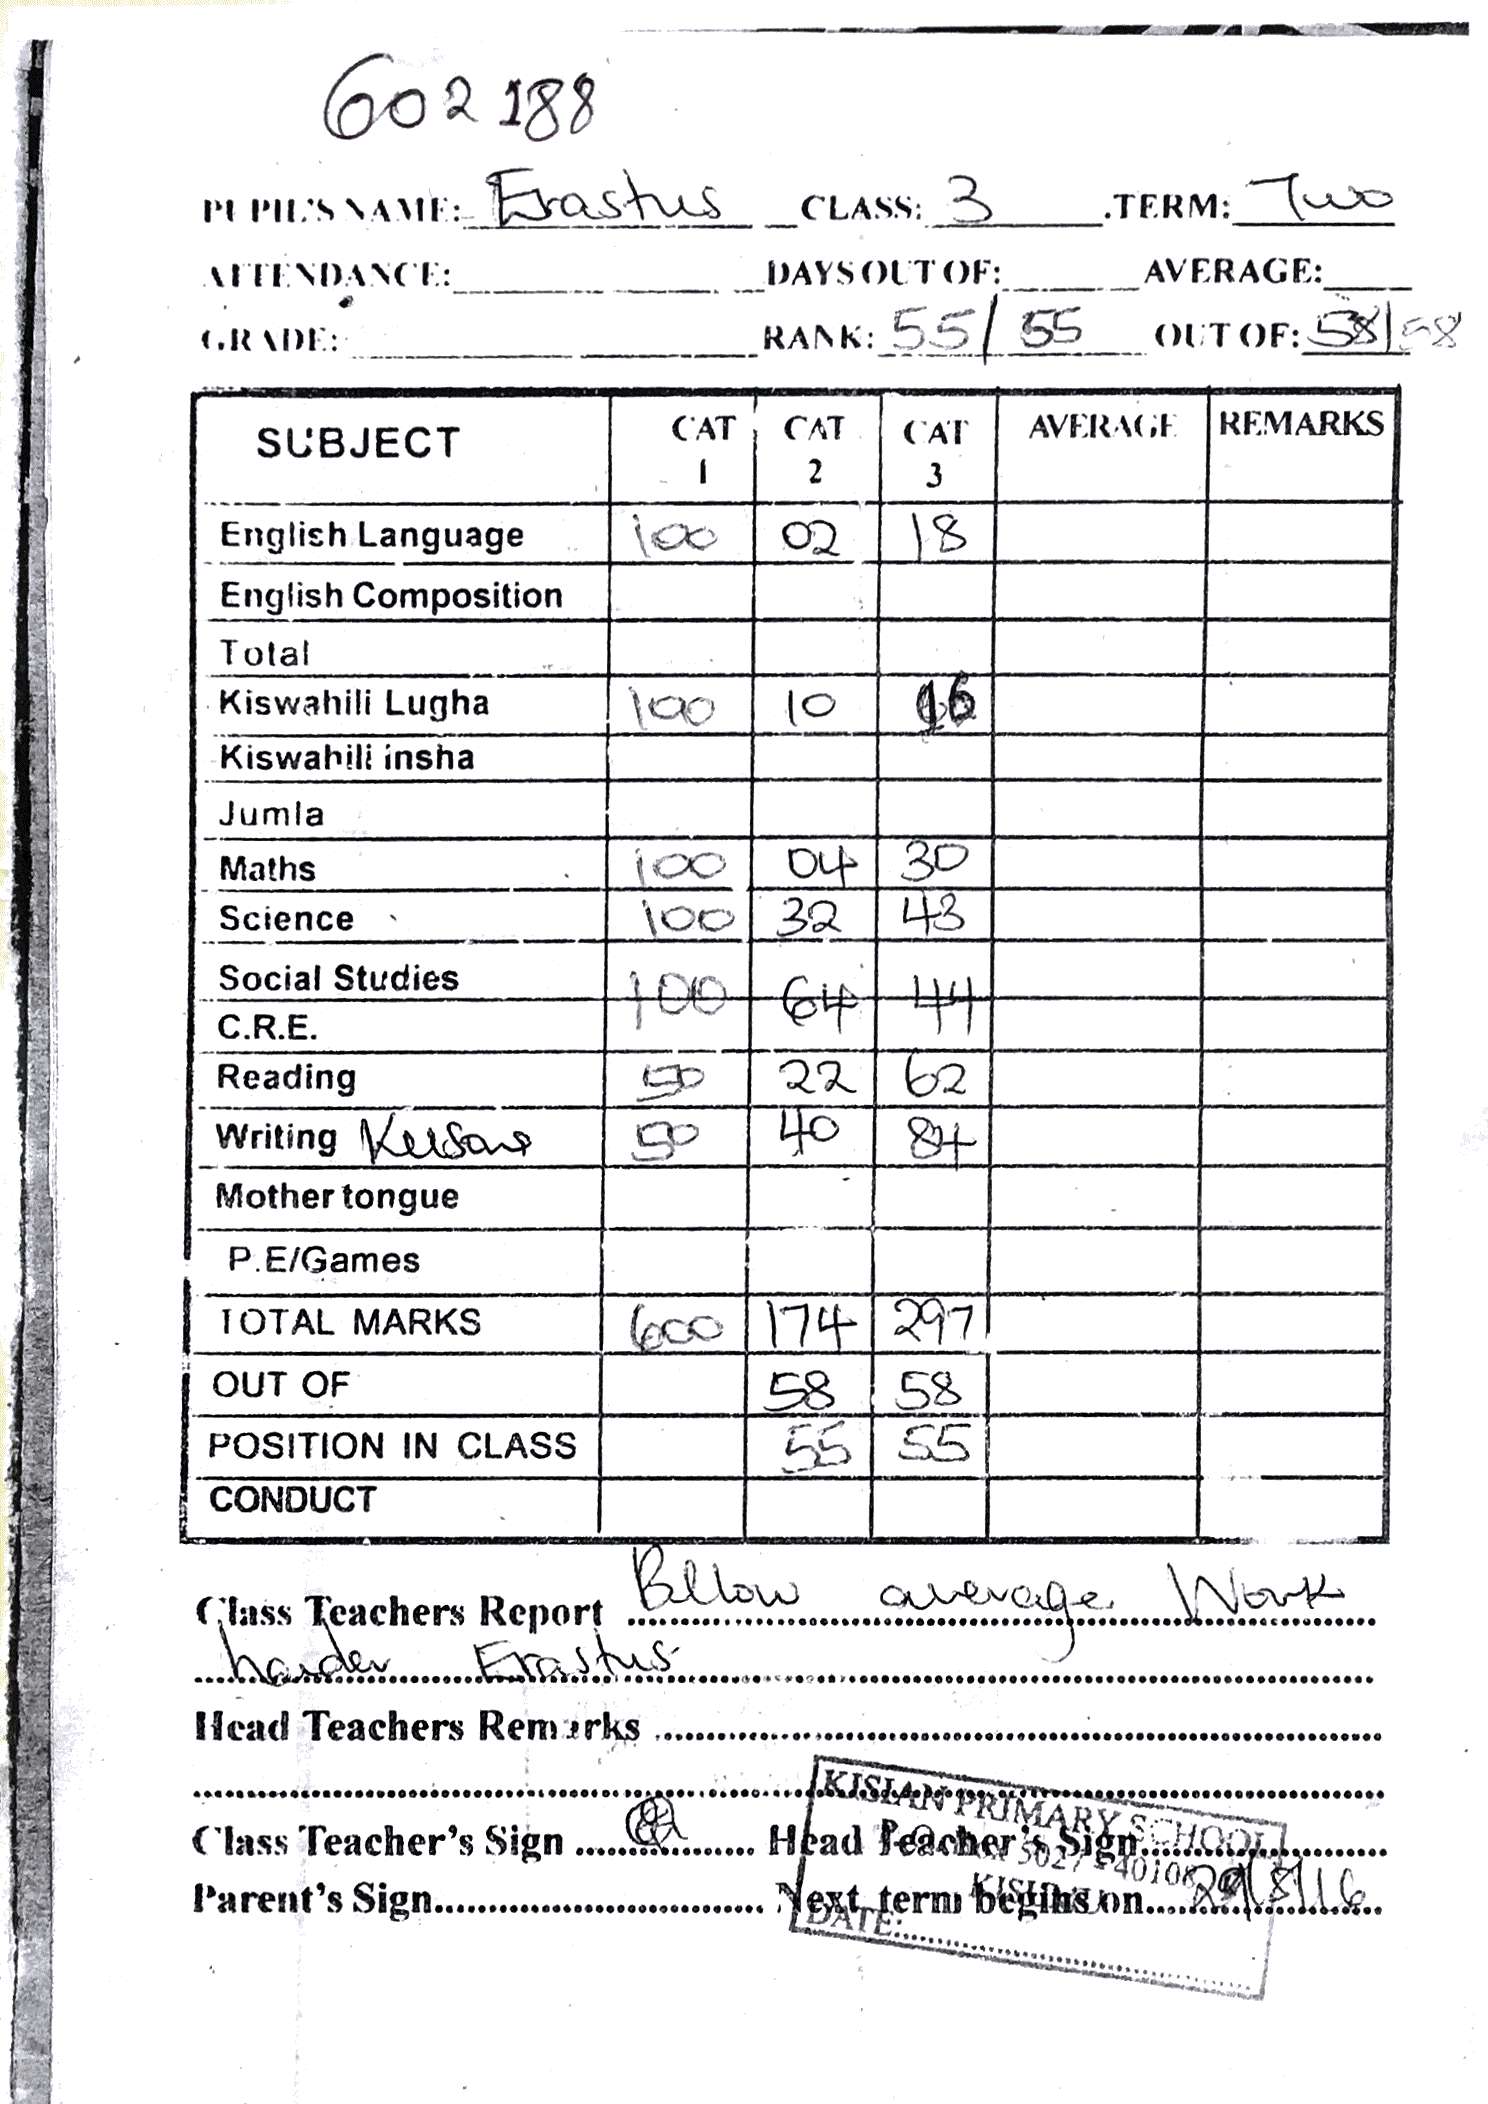 602188
PUPIL'S NAME: Erastus CLASS: 3 .TERM: Two
ATTENDANCE: DAYS OUT OF: AVERAGE:
GRADE: RANK: 55/55 OUT OF: 58/58
SUBJECT CAT 1 CAT 2 CAT 3 AVERAGE REMARKS
English Language 100 02 18
English Composition
Total
Kiswahili Lugha 100 10 16
Kiswahili insha
Jumla
Maths 100 04 30
Science 100 32 43
Social Studies 100 64 44
C.R.E.
Reading 50 22 62
Writing 50 40 84
Mother tongue
P.E/Games
TOTAL MARKS 600 174 297
OUT OF 58 58
POSITION IN CLASS 55 55
CONDUCT
Class Teachers Report Bellow average Work
harder Erastus
Head Teachers Remarks
KISIAN PRIMARY SCHOOL
Class Teacher's Sign Head Teacher's Sign
5027 - 40108
Parent's Sign Next term begins on 29/8/16
DATE: